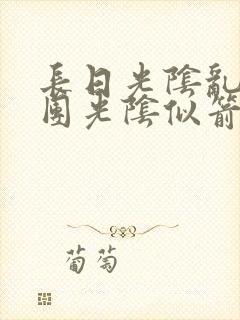 長日光陰亂
園光陰似箭
葡萄